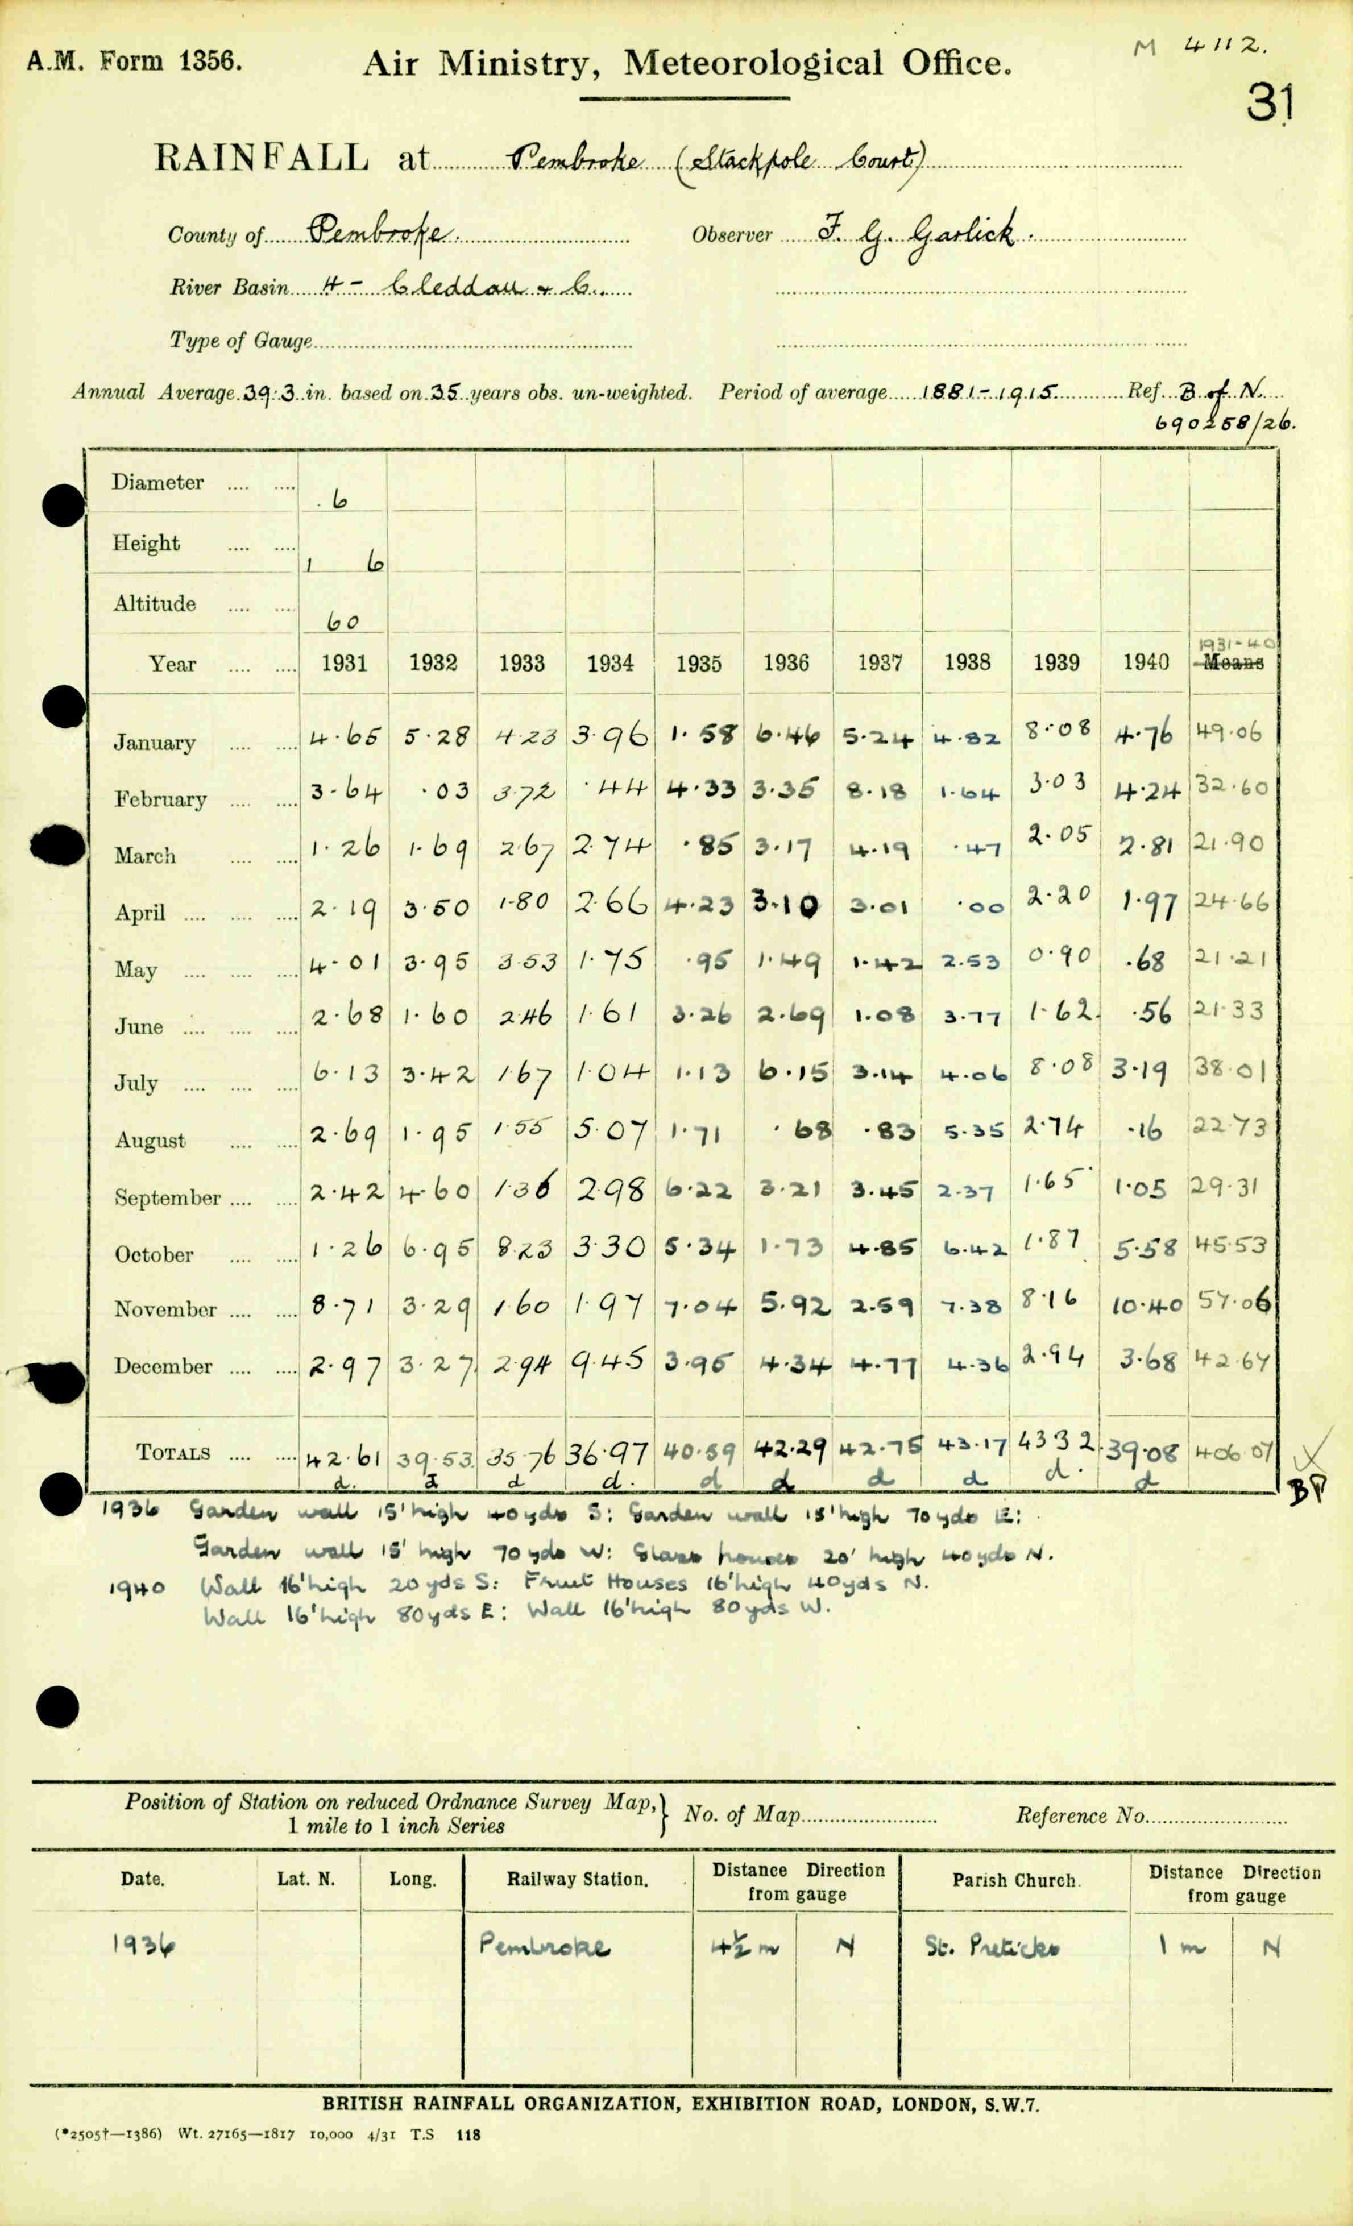 A.M. Form 1356.
Air Ministry, Meteorological Office.
M 4112.
31
RAINFALL at Pembroke (Stackpole Court)
County of Pembroke. Observer F. G. Garlick.
River Basin 4 - Cleddau & C.
Type of Gauge
Annual Average 39.3 in. based on 35 years obs. un-weighted. Period of average 1881-1915. Ref. B of N.
690258/26.
Diameter .... .... 6
Height .... .... 1 6
Altitude .... .... 60
1931-40
Year .... .... 1931 1932 1933 1934 1935 1936 1937 1938 1939 1940 Means
January .... .... 4.65 5.28 4.23 3.96 1.58 6.46 5.24 4.82 8.08 4.76 49.06
February .... .... 3.64 .03 3.72 .44 4.33 3.35 8.18 1.64 3.03 4.24 32.60
March .... .... 1.26 1.69 2.67 2.74 .85 3.17 4.19 .47 2.05 2.81 21.90
April .... .... .... 2.19 3.50 1.80 2.66 4.23 3.10 3.01 .00 2.20 1.97 24.66
May .... .... .... 4.01 3.95 3.53 1.75 .95 1.49 1.42 2.53 0.90 .68 21.21
June .... .... .... 2.68 1.60 2.46 1.61 3.26 2.69 1.08 3.77 1.62 .56 21.33
July .... .... .... 6.13 3.42 1.67 1.04 1.13 6.15 3.14 4.06 8.08 3.19 38.01
August .... .... 2.69 1.95 1.55 5.07 1.71 .68 .83 5.35 2.74 .16 22.73
September .... .... 2.42 4.60 1.36 2.98 6.22 3.21 3.45 2.37 1.65 1.05 29.31
October .... .... 1.26 6.95 8.23 3.30 5.34 1.73 4.85 6.42 1.87 5.58 45.53
November .... .... 8.71 3.29 1.60 1.97 7.04 5.92 2.59 7.38 8.16 10.40 57.06
December .... .... 2.97 3.27 2.94 9.45 3.95 4.34 4.77 4.36 2.94 3.68 42.67
TOTALS .... .... 42.61 39.53 35.76 36.97 40.59 42.29 42.75 43.17 43 32 39.08 406.07
d. d d d. d d d d d. d
BP
1936 Garden wall 15' high 40 yds S: Garden wall 15' high 70 yds E:
Garden wall 15' high 70 yds W: Glass houses 20' high 40 yds N.
1940 Wall 16' high 20 yds S: Fruit Houses 16' high 40 yds N.
Wall 16' high 80 yds E: Wall 16' high 80 yds W.
Position of Station on reduced Ordnance Survey Map,
1 mile to 1 inch Series
No. of Map Reference No.
Date. Lat. N. Long. Railway Station. Distance Direction from gauge Parish Church. Distance Direction from gauge
1936 Pembroke 4½ m N St. 1 m N
BRITISH RAINFALL ORGANIZATION, EXHIBITION ROAD, LONDON, S.W.7.
(*2505†—1386) Wt. 27165—1817 10,000 4/31 T.S 118